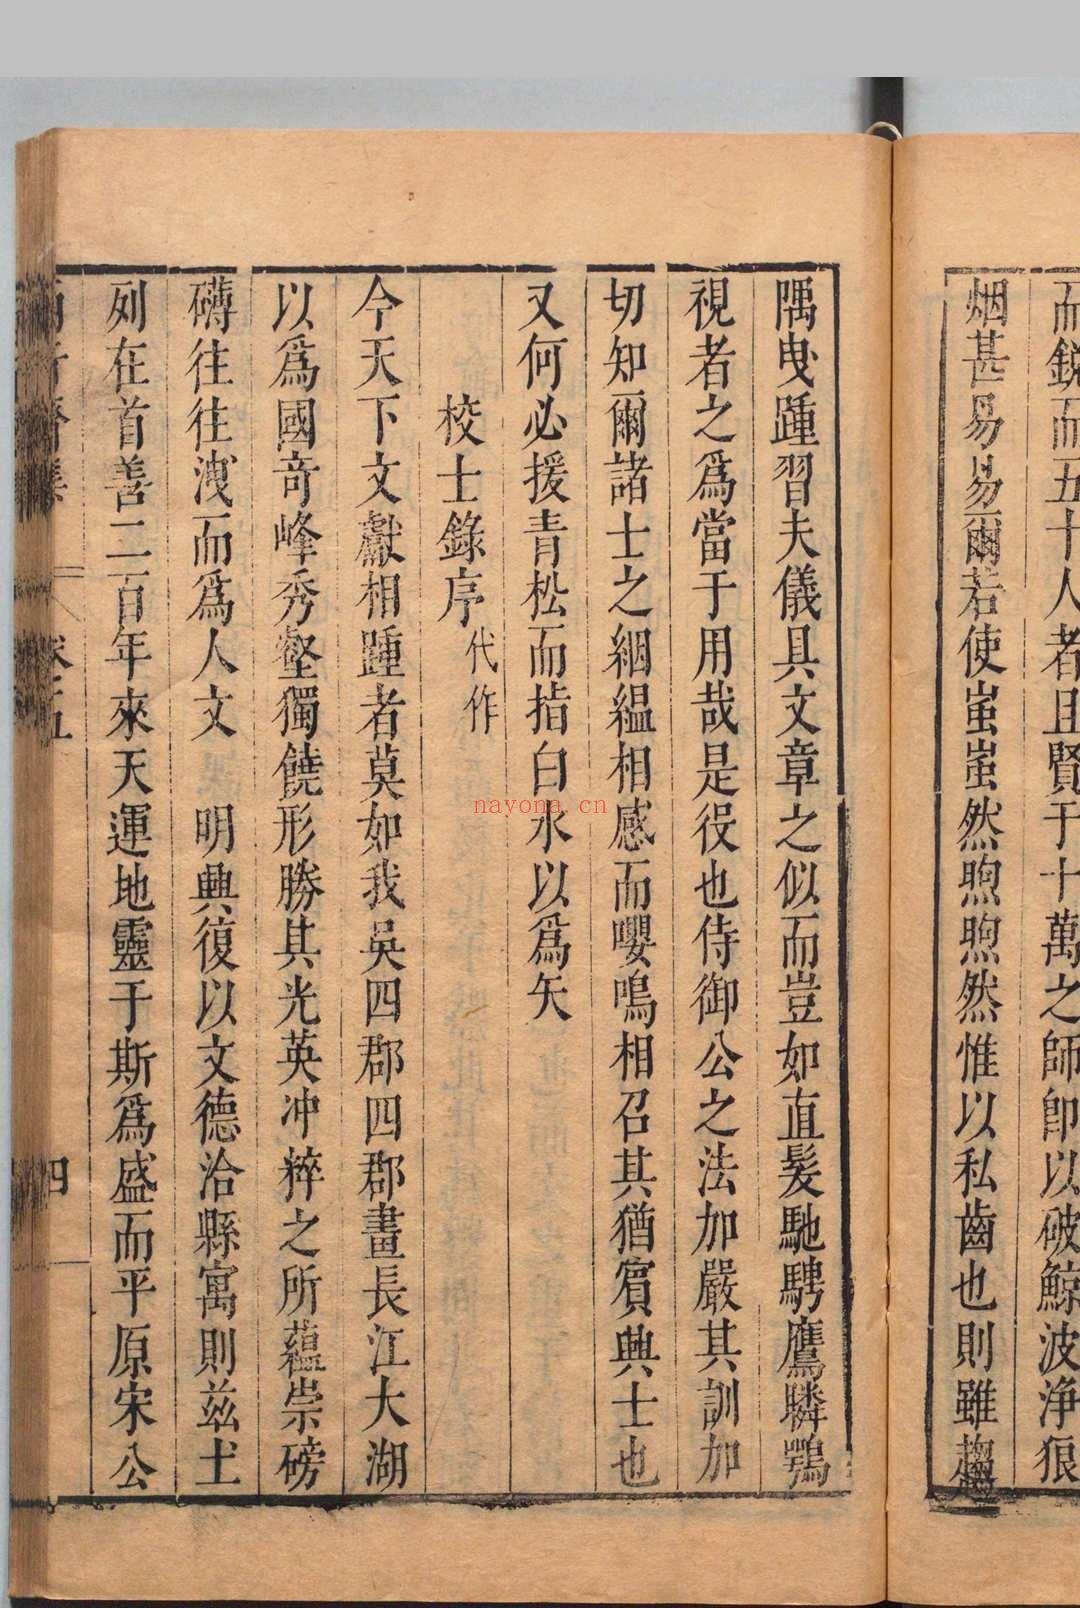 而銳而五十人者且賢于十萬之師卽以破鯨波浄狼
烟甚易易爾若使蚩蚩然煦煦然惟以私齒也則雖趨
隅曳踵習夫儀具文章之似而豈如直髮馳騁鷹瞵鶚
視者之爲當于用哉是役也侍御公之法加嚴其訓加
切知爾諸士之絪縕相感而嚶鳴相召其猶賓興士也
又何必援青松而指白水以爲矢
校士錄序 代作
今天下文獻相踵者莫如我吳四郡四郡畫長江大湖
以爲國竒峰秀壑獨饒形勝其光英冲粹之所蘊崇磅
礴往往洩而爲人文 明興復以文德洽縣寓則玆土
列在首善二百年來天運地靈于斯爲盛而平原宋公
卷之五
四
nayona.cn